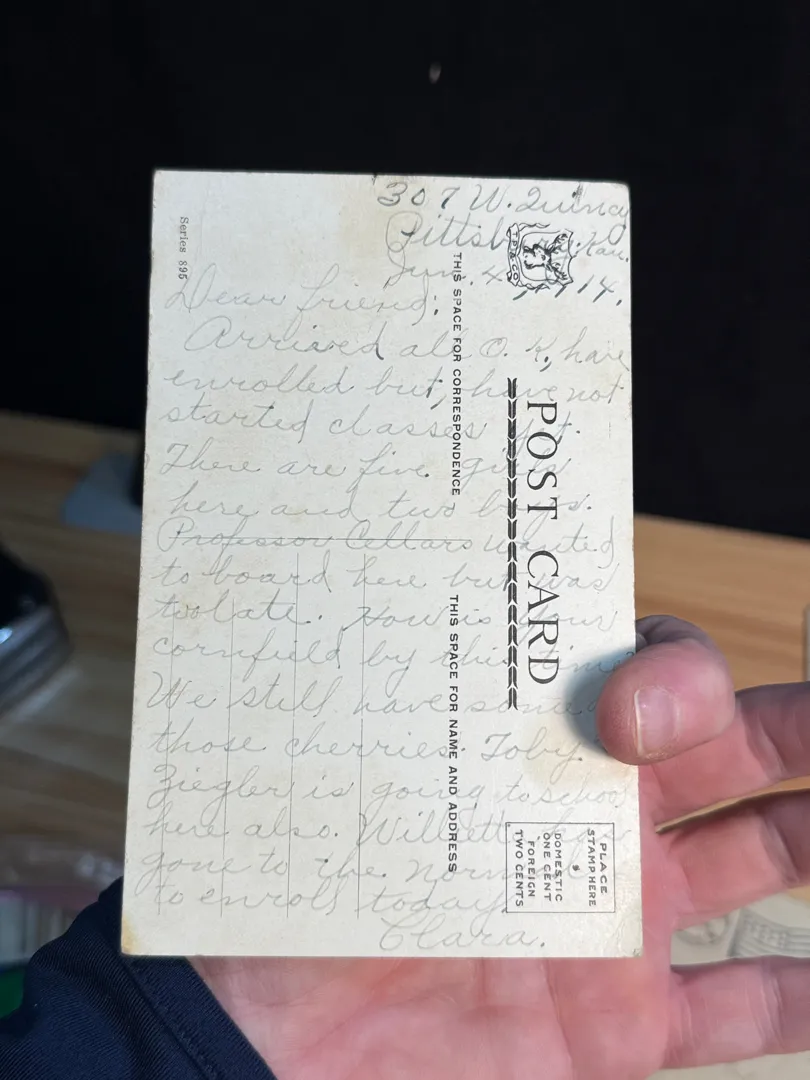 307 W. Quincy
Pittsb Kan.
Jun. 4, 1914.
Dear friend:
Arrived all O.K., have
enrolled but, have not
started classes yet.
There are five girls
here and two boys.
Professor Cellars wanted
to board here but was
too late. How is your
cornfield by this time?
We still have some
those cherries. Toby
Ziegler is going to school
here also. Willett has
gone to the Normal
to enroll today.
Clara.
Series 895
T.P. & CO.
POST CARD
THIS SPACE FOR CORRESPONDENCE
THIS SPACE FOR NAME AND ADDRESS
PLACE
STAMP HERE
DOMESTIC
ONE CENT
FOREIGN
TWO CENTS